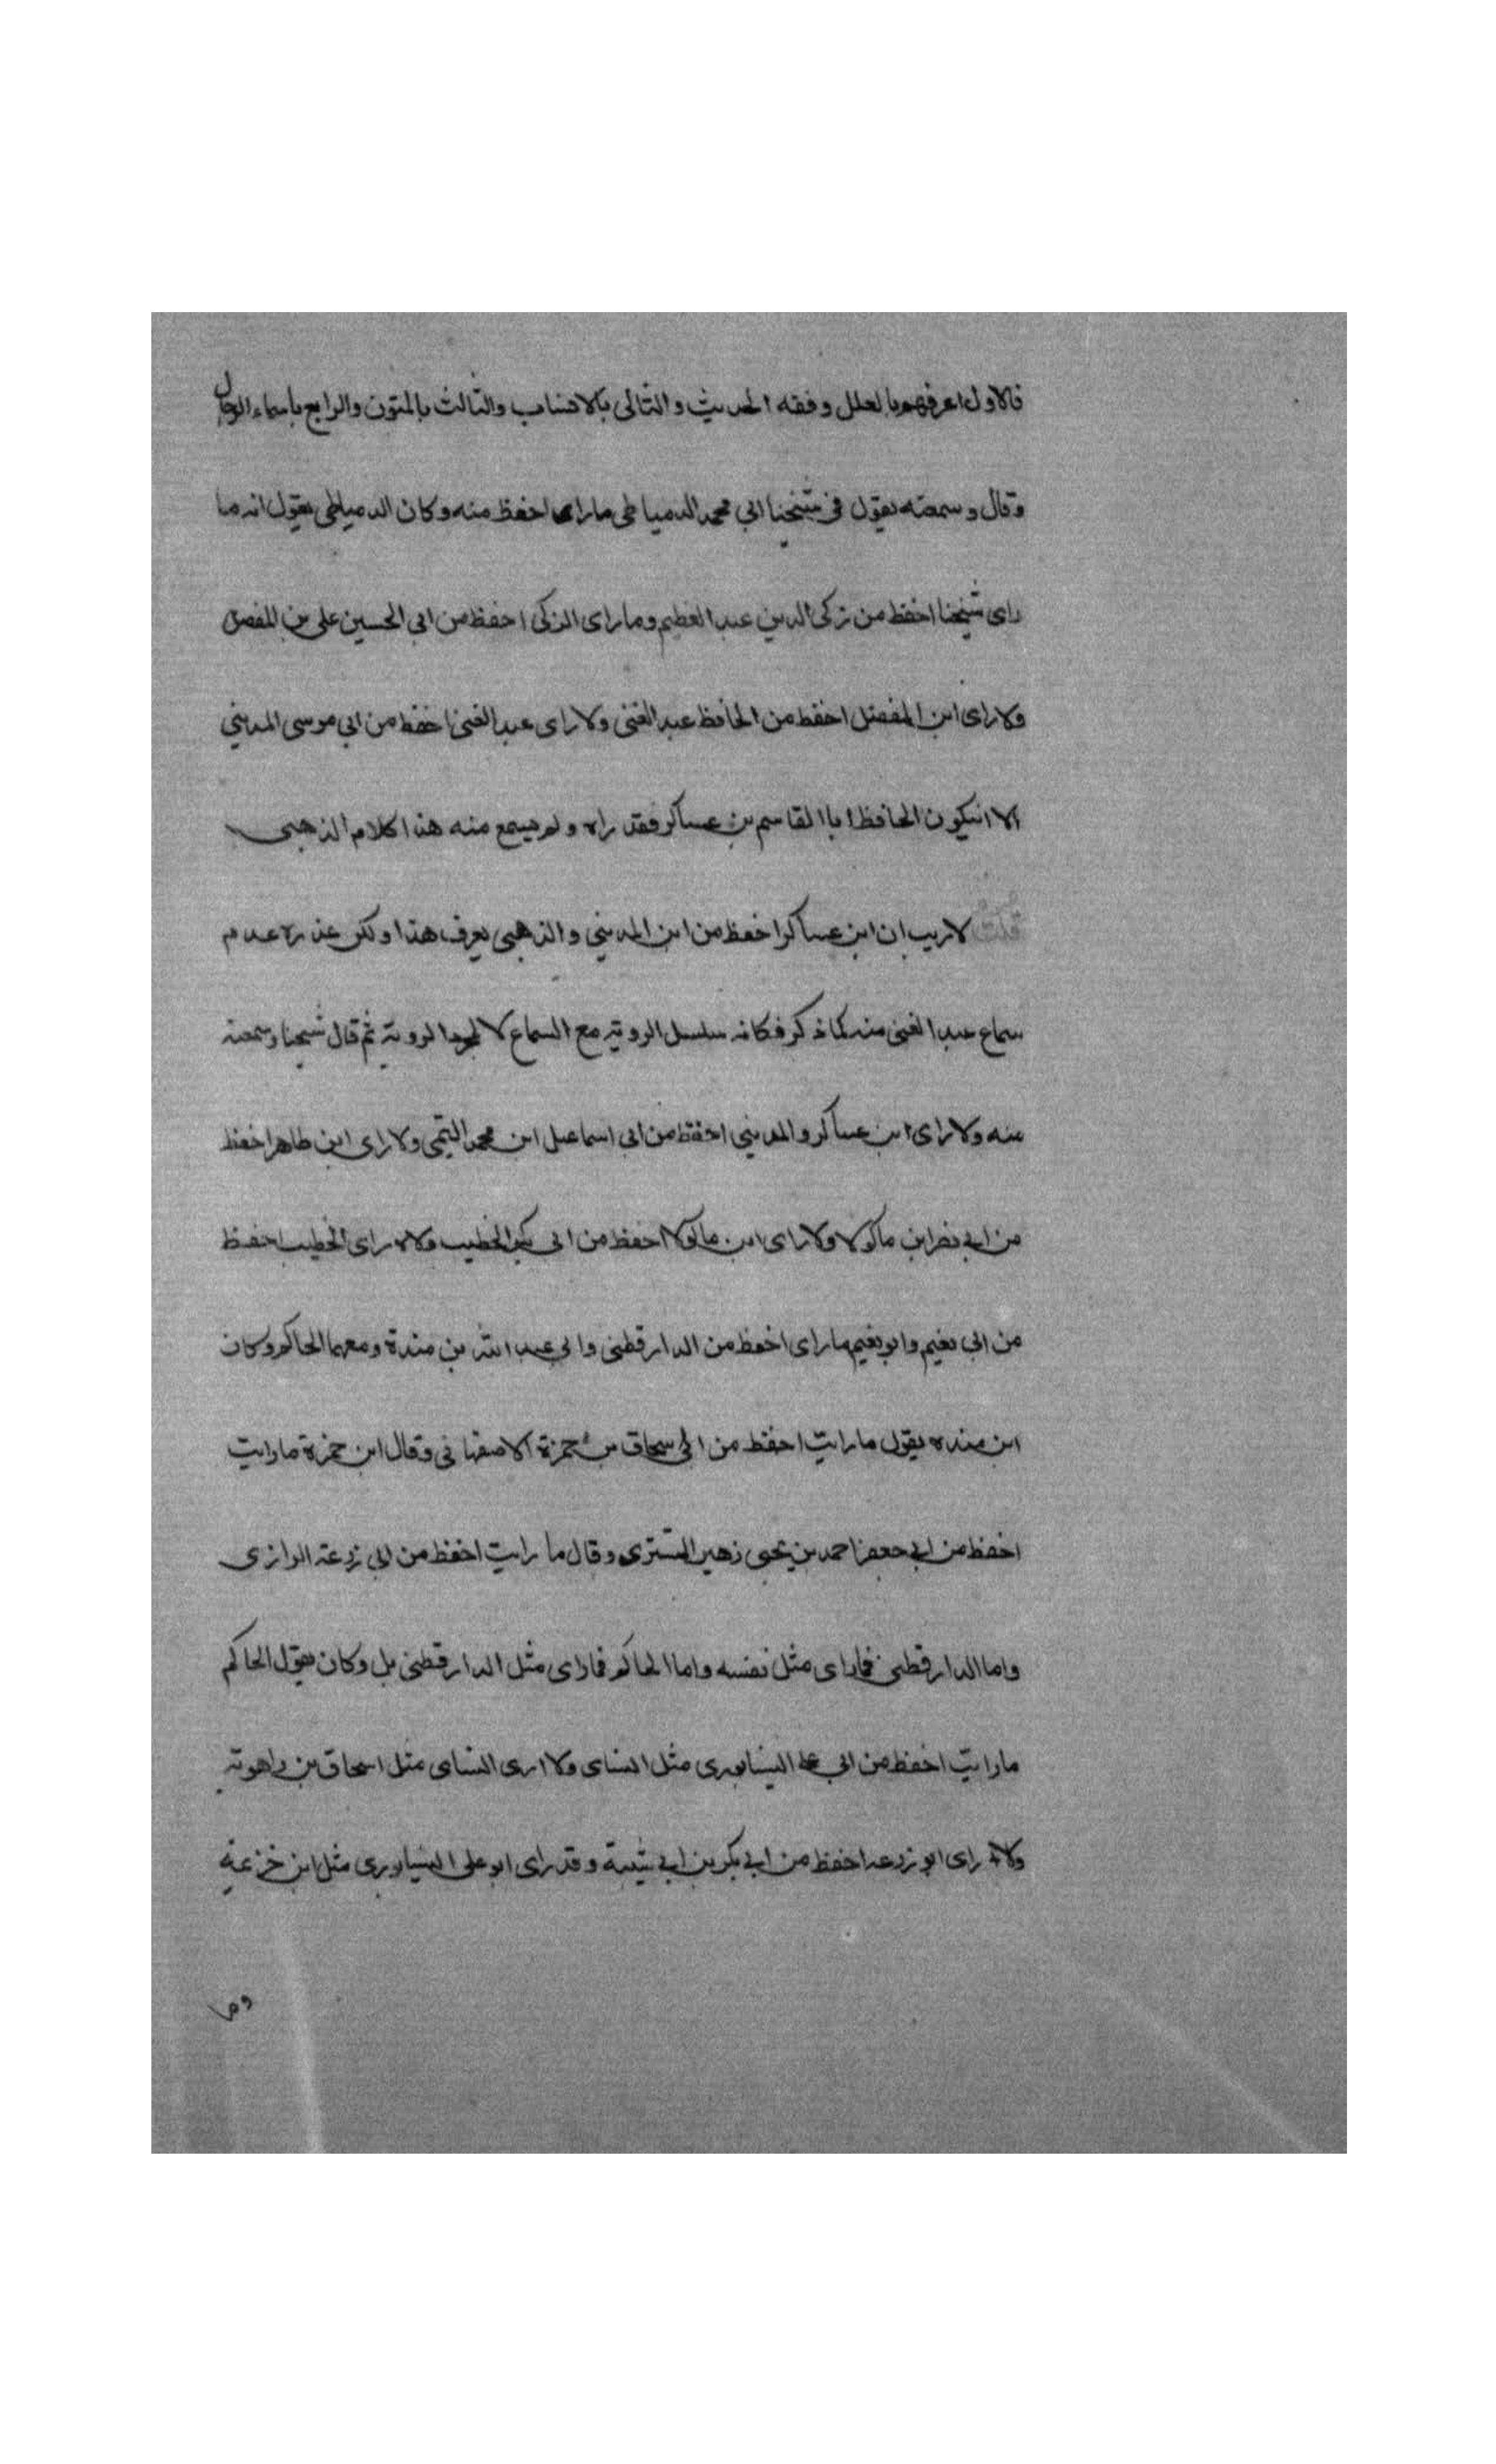 فالاول اعرفهم بالعلل وفقه الحديث والثانى بالانساب والثالث بالمتون والرابع باسماء الرجال
وقال وسمعته يقول فى شيخنا ابى محمد الدمياطى ماراى احفظ منه وكان الدمياطى يقول انه ما
راى شيخنا احفظ من زكى الدين عبد العظيم وما راى الزكى احفظ من ابى الحسين على بن المفضل
ولا راى ابن المفضل احفظ من الحافظ عبد الغنى ولا راى عبد الغنى احفظ من ابى موسى المدينى
الا ان يكون الحافظ ابا القاسم بن عساكر فقد راه ولم يسمع منه هذا كلام الذهبى
قلت لا ريب ان ابن عساكر احفظ من ابن المدينى والذهبى يعرف هذا ولكن عذره عدم
سماع عبد الغنى منه كما ذكر فكانه سلسل الروية مع السماع لا لمجرد الروية ثم قال شيخنا وسمعته
منه ولا راى ابن عساكر والمدينى احفظ من ابى اسماعيل ابن محمد التيمى ولا راى ابن طاهر احفظ
من ابى نصر ابن ماكولا ولا راى ابن ماكولا احفظ من ابى بكر الخطيب ولا راى الخطيب احفظ
من ابى نعيم وابو نعيم ما راى احفظ من الدارقطنى وابى عبد الله بن مندة ومعهما الحاكم وكان
ابن منده يقول ما رايت احفظ من ابى سحاق بن حمزة الاصفهانى وقال ابن حمزة ما رايت
احفظ من ابى جعفر احمد بن يحيى زهير التسترى وقال ما رايت احفظ من ابى زرعة الرازى
واما الدارقطنى فما راى مثل نفسه واما الحاكم فما راى مثل الدارقطنى بل وكان يقول الحاكم
ما رايت احفظ من ابى على النيسابورى مثل النساى ولا ارى النساى مثل اسحاق بن راهويه
ولا راى ابو زرعه احفظ من ابى بكر بن ابى شيبة وقد راى ابو على النيسابورى مثل ابن خزيمة
وما